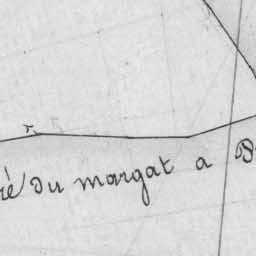 ré du margat a